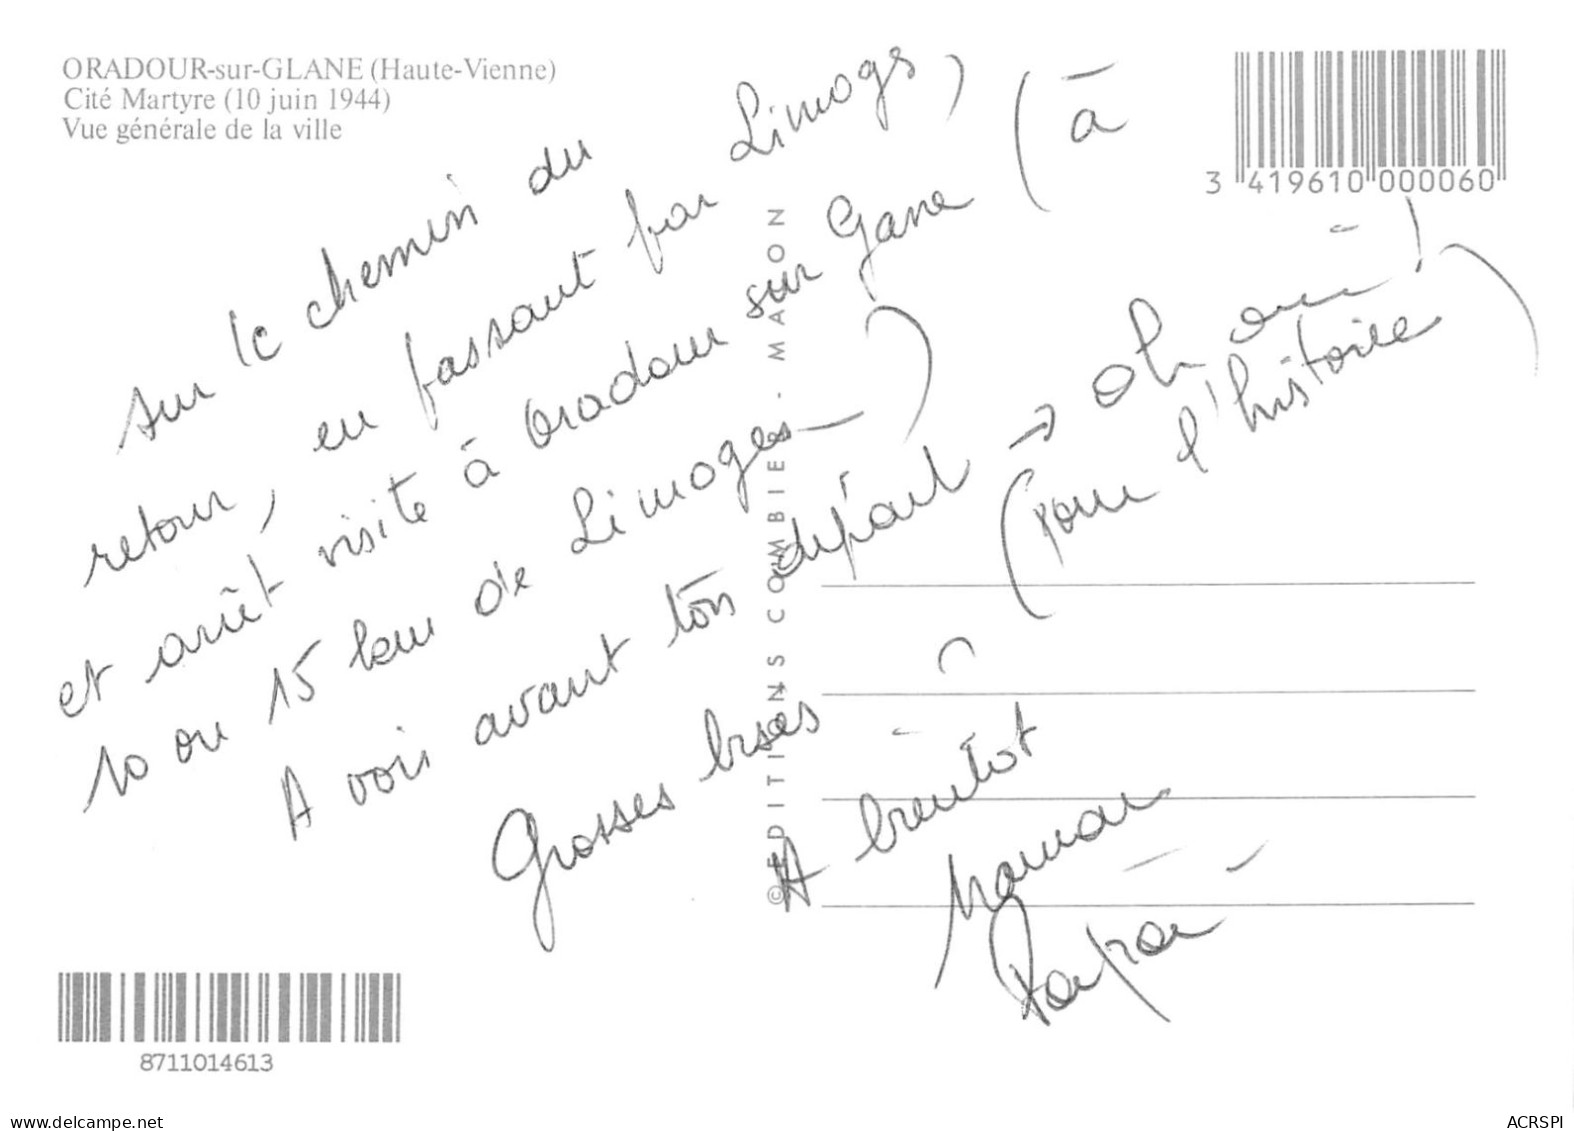 ORADOUR-sur-GLANE (Haute-Vienne)
Cité Martyre (10 juin 1944)
Vue générale de la ville
3 419610 000060
sur le chemin du
retour, en passant par Limogs,
et arrêt visite à Oradour sur Gane (à
10 ou 15 km de Limoges)
A voir avant ton départ → oh oui!
(pour l'histoire)
Grosses bises
A bientôt
Maman
Papa
© EDITIONS COMBIER - MACON
8711014613
www.delcampe.net
ACRSPI